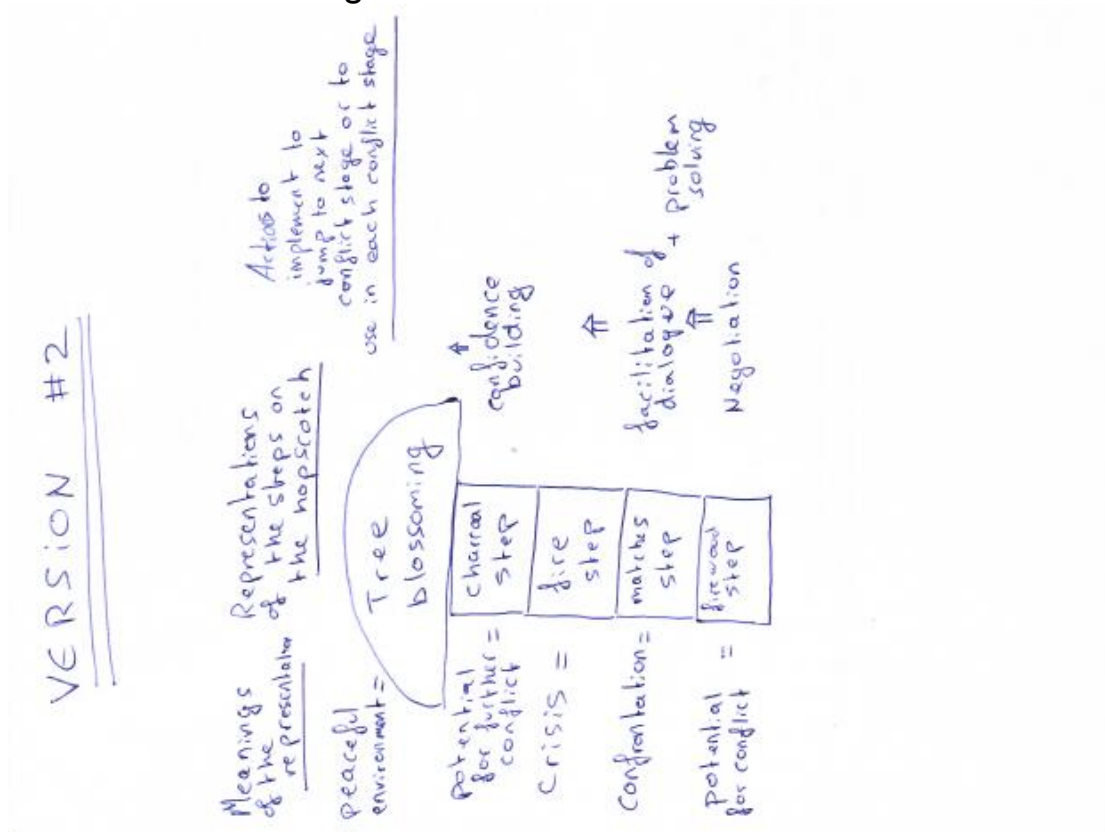 VERSION #2
Meanings
of the
representation
Representations
of the steps on
the hopscotch
Actions to
implement to
jump to next
conflict stage or to
use in each conflict stage
peaceful
environment =
Tree
blossoming
potential
for further =
conflict
charcoal
step
confidence
building
Crisis =
fire
step
Confrontation =
matches
step
facilitation of
dialogue + problem
solving
potential =
for conflict
firewood
step
Negotiation